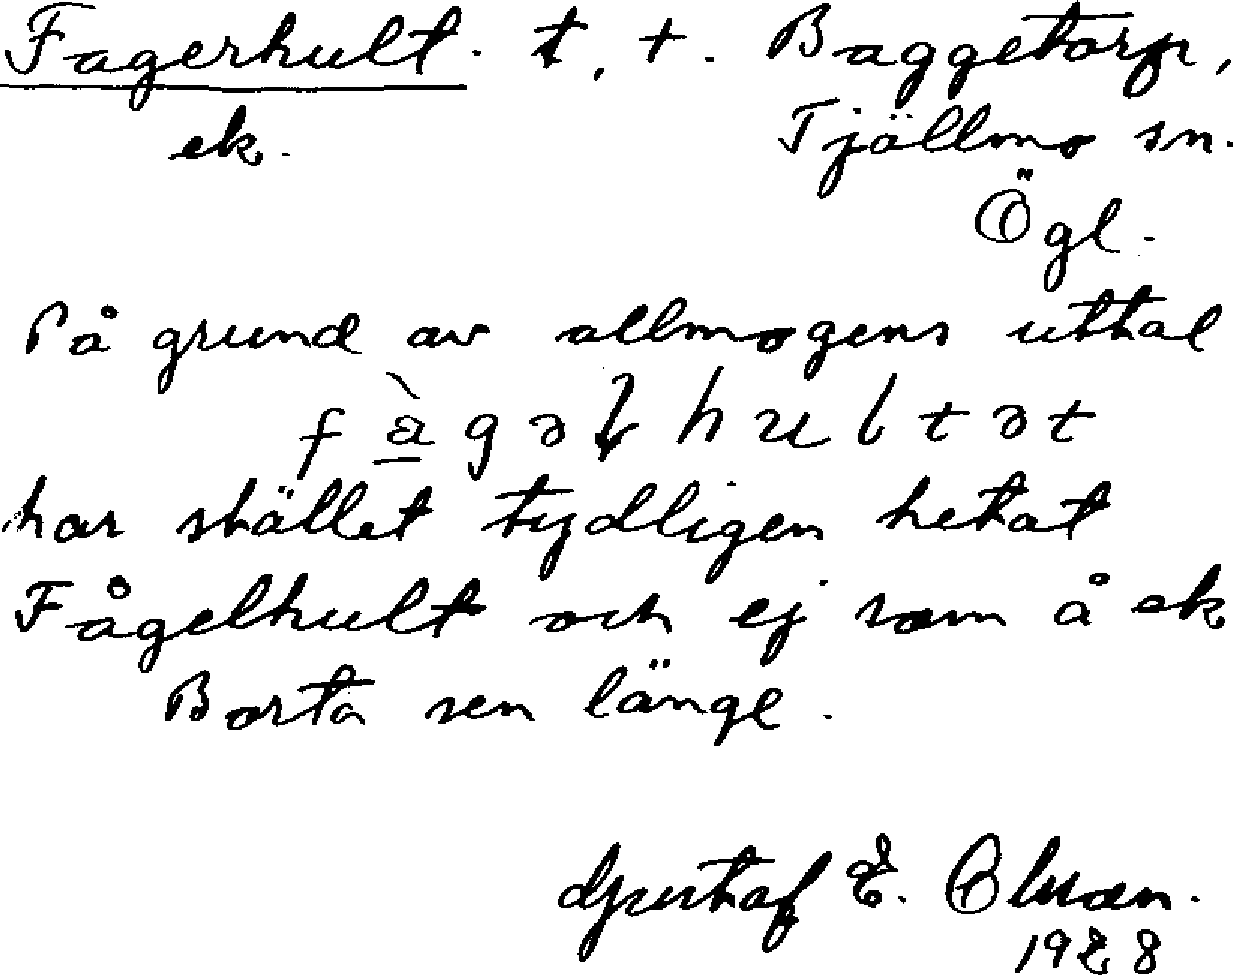 Fagerhult. t, +. Baggetorp,
ek. Tjällmo sn.
Ögl.
På grund av allmogens uttal
fàgəɭhultət
har stället tydligen hetat
Fågelhult och ej som å ek
Borta sen länge.
Gustaf E. Olsson.
1928